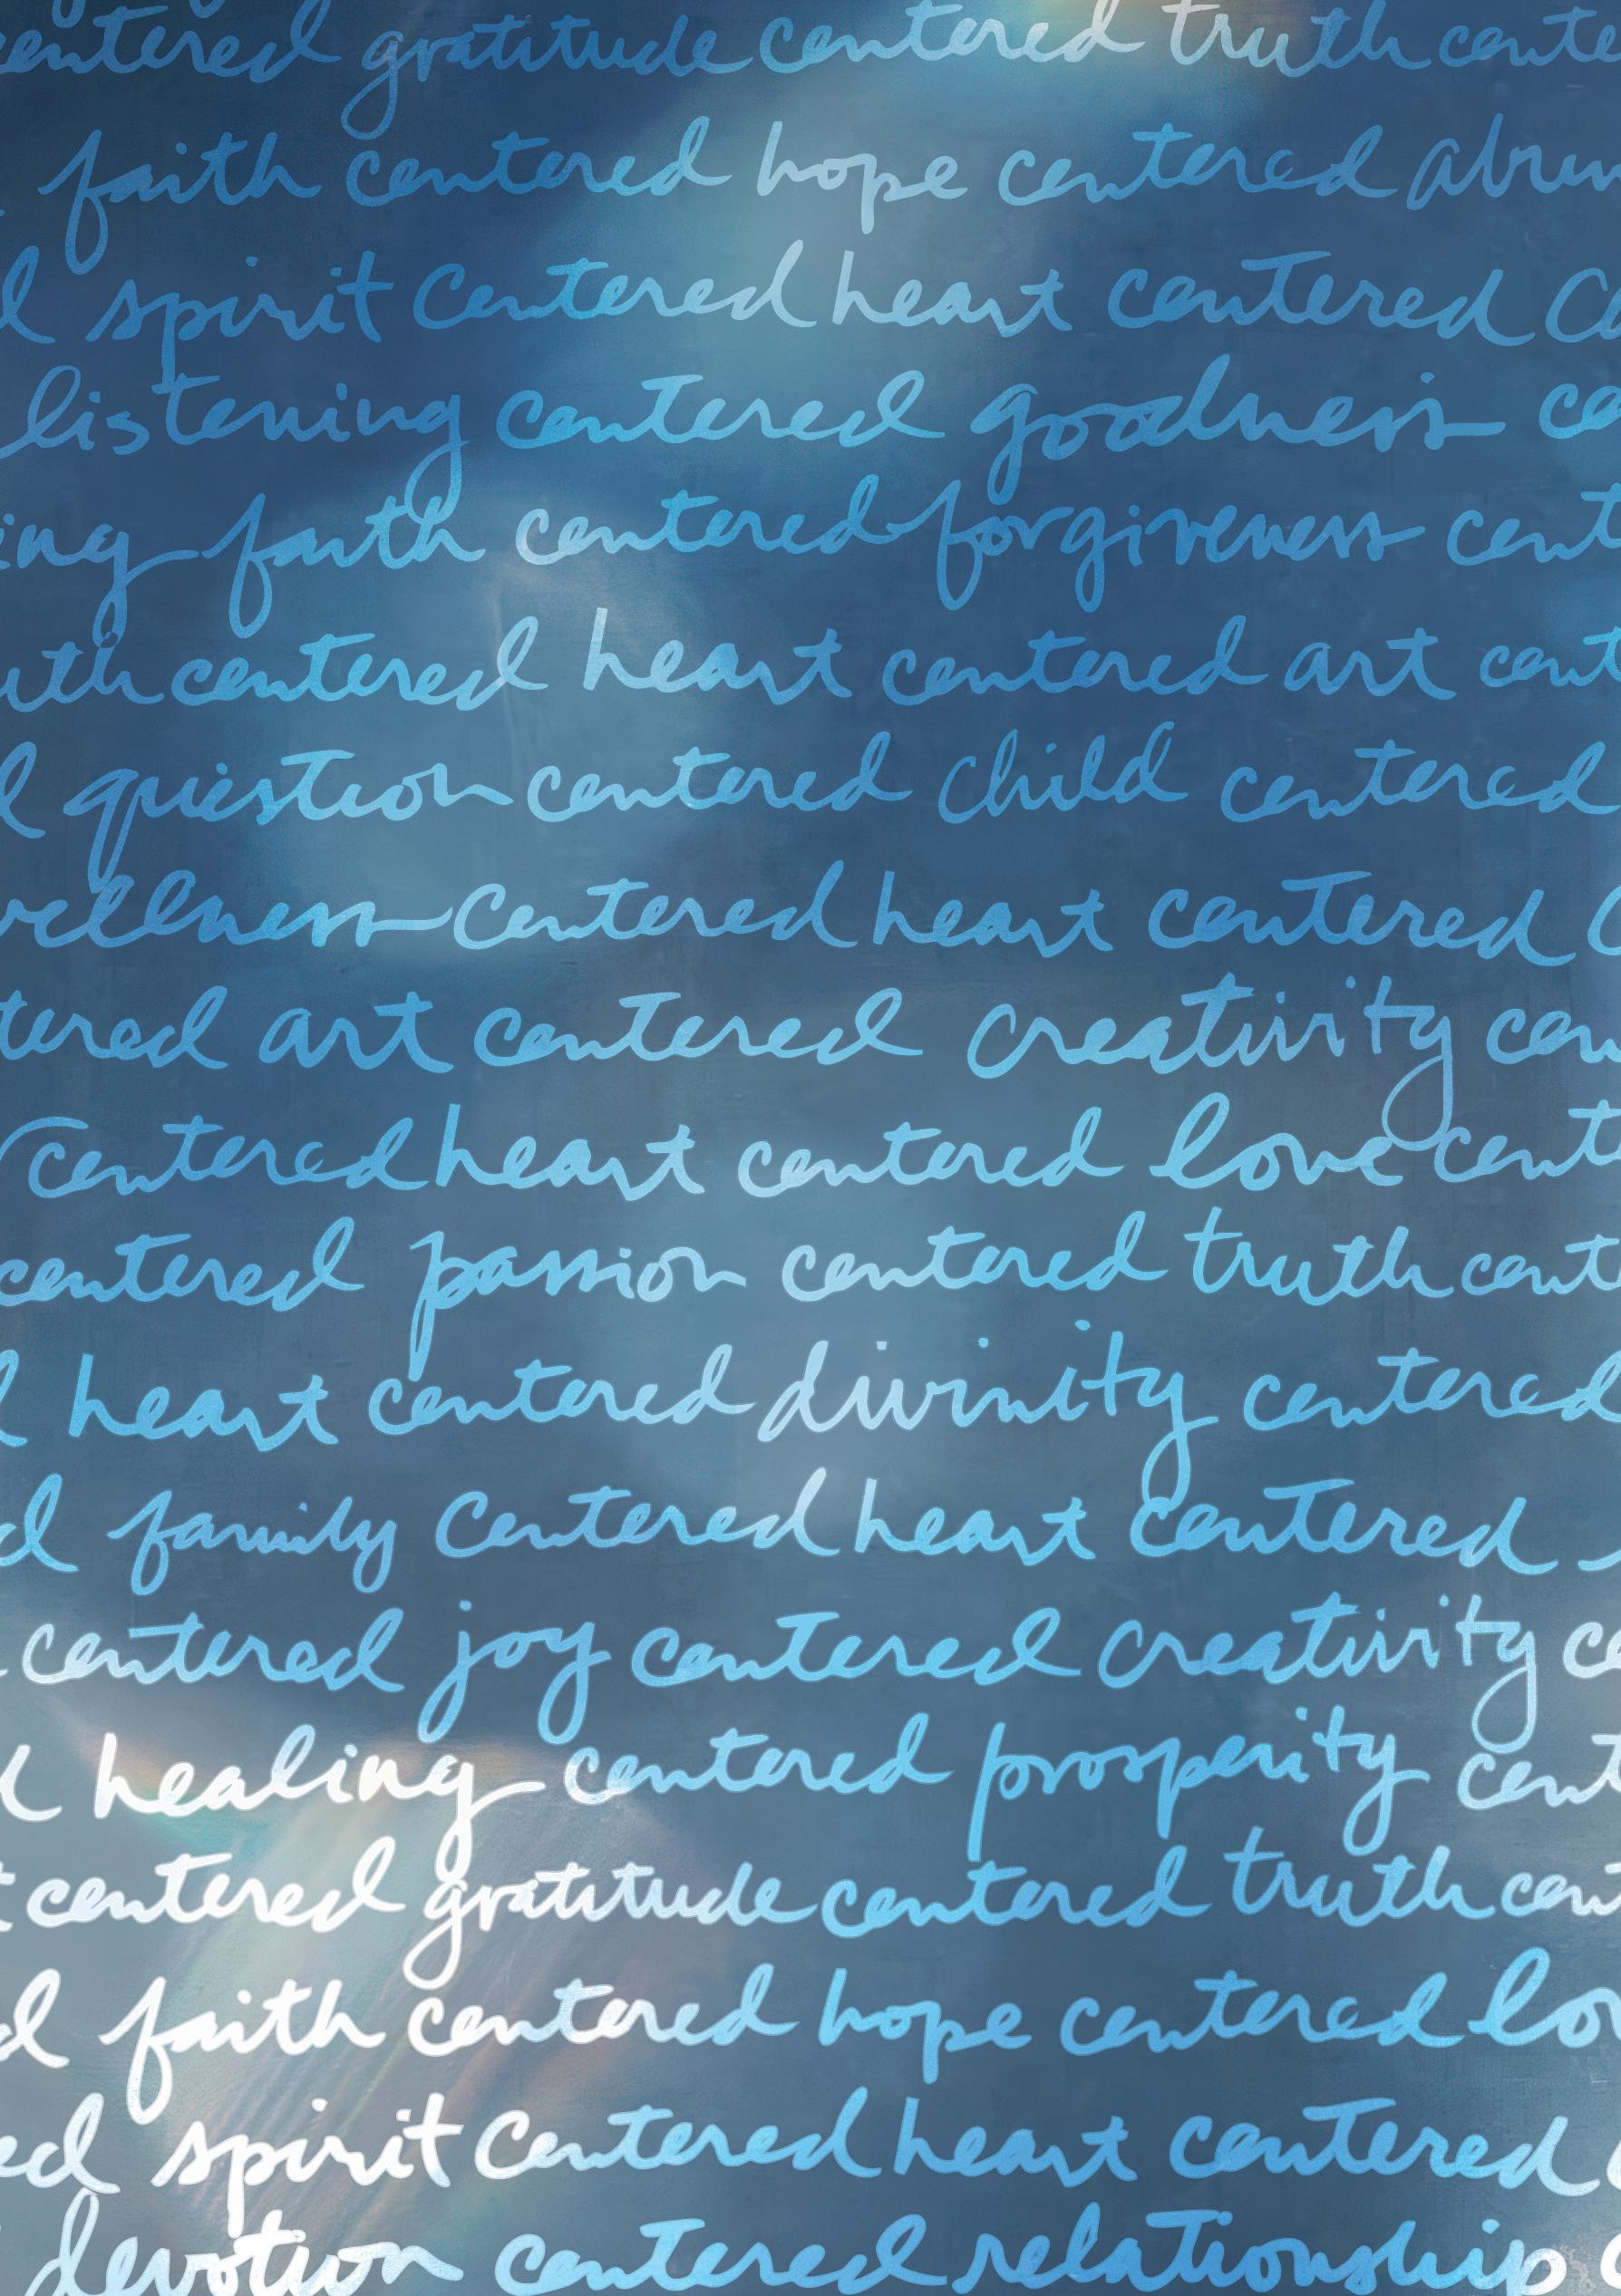 centered gratitude centered truth cente
faith centered hope centered abun
d spirit centered heart centered c
listening centered goodness ce
ing faith centered forgiveness cent
uth centered heart centered art cent
d question centered child centered
wellness centered heart centered c
tered art centered creativity cen
centered heart centered love cent
centered passion centered truth cent
d heart centered divinity centered
d family centered heart centered
centered joy centered creativity ce
d healing centered prosperity cent
t centered gratitude centered truth cen
d faith centered hope centered lov
ed spirit centered heart centered
devotion centered relationship c